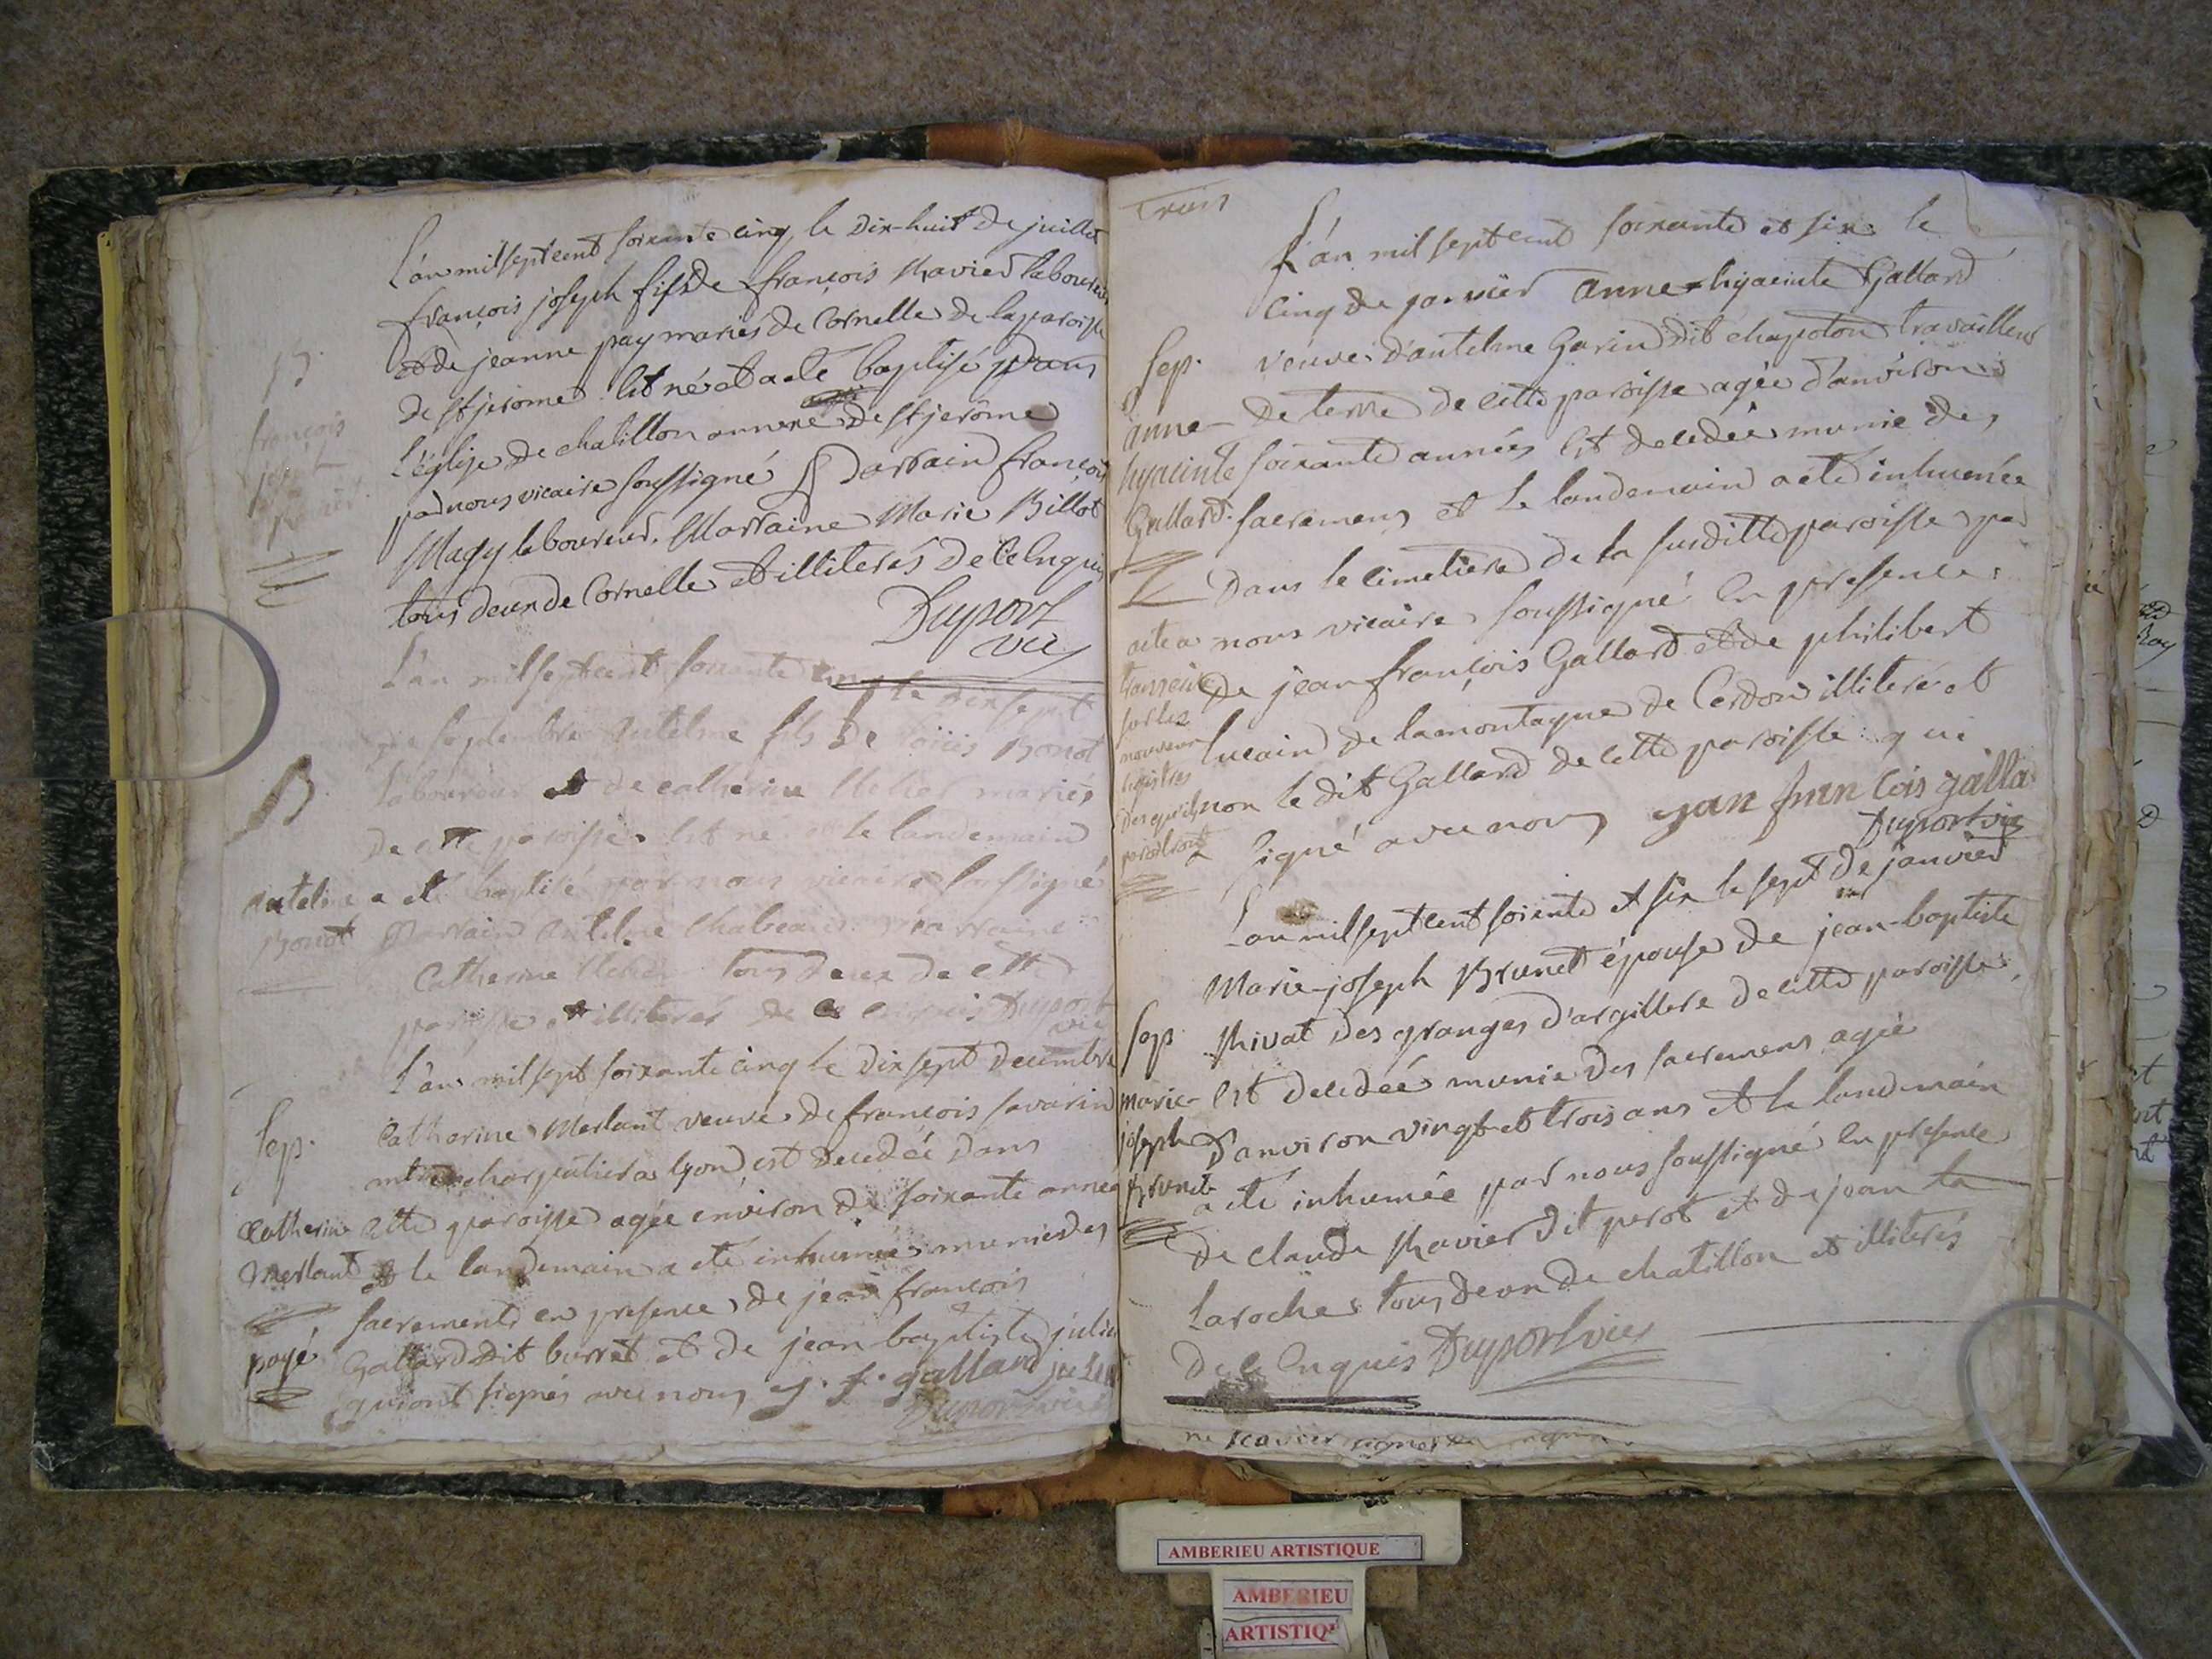 L'an mil sept cent soixante cinq le dix-huit de juillet
françois joseph fils de françois Thavier laboureur
et de jeanne pay mariés de Cornelle de la paroisse
B.
de st jerome est né et a eté baptisé dans
françois
l'église de chatillon annexe de st jerôme
par nous vicaire soussigné Parrain françois
Magy laboureur. Marraine Marie Billot
tous deux de Cornelle et illiterés de ce Enquis
Duport
vic
L'an mil sept cent soixante cinq le dix sept
de septembre Antelme fils de Loüis Bonot
B.
laboureur et de catherine mariés
de cette paroisse est né et le landemain
Antelme
a eté baptisé par nous vicaire soussigné
Bonot
Parrain Antelme marraine
Catherine tous deux de cette
paroisse et illiterés de ce enquis Duport
vic
L'an mil sept soixante cinq le dix sept decembre
Sep.
Catherine Merlant veuve de françois savarin
charpentier a lyon est decedée dans
Catherine
cette paroisse agée environ de soixante années
Merlant
et le landemain a eté inhumée munie des
sacrements en presence de jean françois
payé
Gallard dit burret et de jean baptiste
qui ont signés avec nous j. f. gallard
Duport vic
Trois
L'an mil sept cent soixante et six le
cinq de janvier Anne-hyacinte Gallard
Sep.
veuve d'antelme Garin dit chapoton travailleur
Anne-
de terre de cette paroisse agée d'anviron
hyacinte
soixante années est decedée munie des
Gallard.
sacremens et le landemain a eté inhumée
dans le cimetiere de la susditte paroisse par
nous vicaire soussigné en presence
de jean françois Gallard et de philibert
lucain de la montagne de Cerdon illiteré et
nouveaux
registres
non le dit Gallard de cette paroisse qui
a signé avec nous jan fran cois galla
Duport vic
L'an mil sept cent soixente et six le sept de janvier
Marie-joseph Brunet épouse de jean-baptiste
Sep.
Thivat des granges d'argillere de cette paroisse
Marie-
est decedée munie des sacremens agée
joseph
d'anviron vingt et trois ans et le landemain
Brunet
a eté inhumée par nous soussigné en presence
de claude Thavier dit perot et de jean la
Laroche tous deux de chatillon et illiterés
de ce Enquis Duport vic
AMBERIEU ARTISTIQUE
AMBERIEU
ARTISTIQ